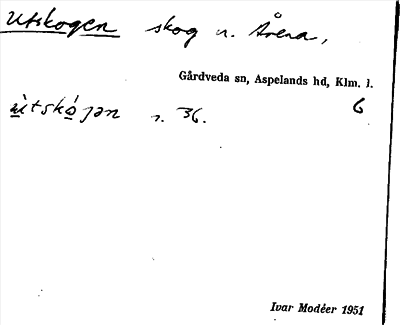 Utskogen skog n. Årena,
Gårdveda sn, Aspelands hd, Klm. l.
6
ùtskójən n. 36.
Ivar Modéer 1951